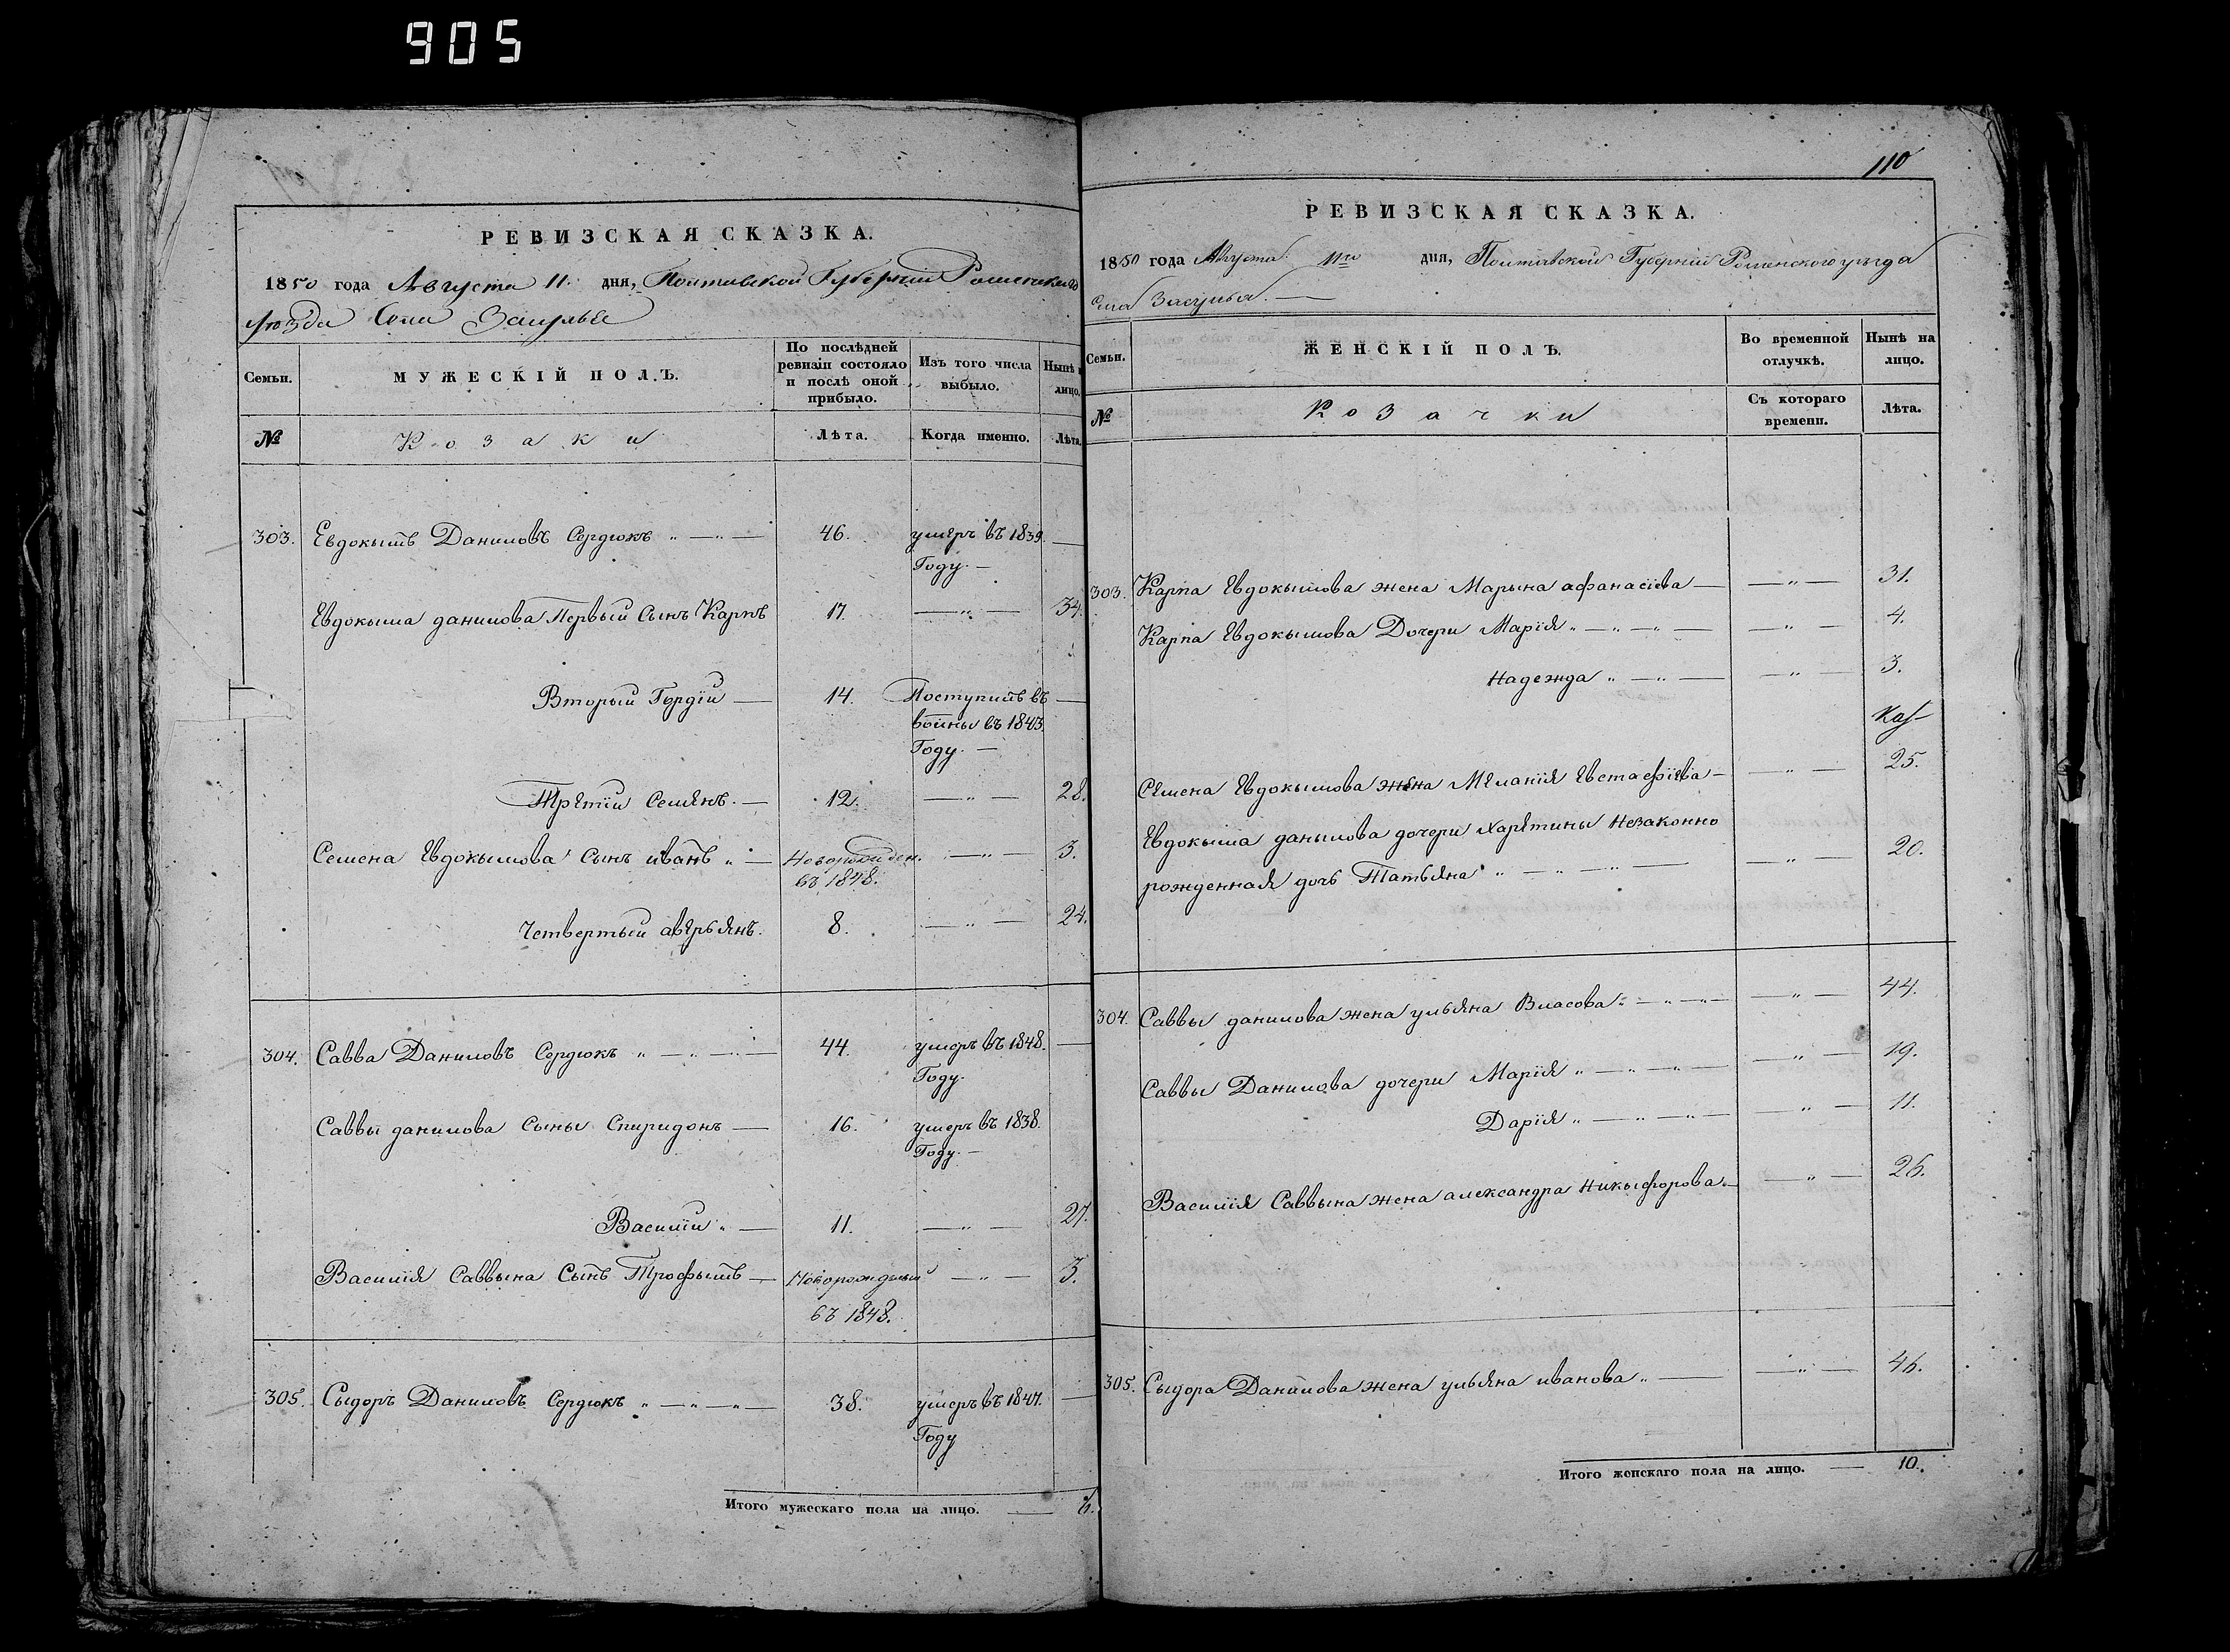 905
РЕВИЗСКАЯ СКАЗКА.
1850 года Августа 11. дня, Полтавской Губернии Роменского
уѣзда Села Засулье
Семьи.
МУЖЕСКІЙ ПОЛЪ.
По послѣдней ревизіи состояло и послѣ оной прибыло.
Изъ того числа выбыло.
Нынѣ лицо.
№
Козаки
Лѣта.
Когда именно.
Лѣта.
303. Евдокымъ Даниловъ Сердюкъ 46. умеръ въ 1839.
Году.
Евдокыма данилова Первый Сынъ Карпъ 17. 34.
Вторый Гордій 14. Поступилъ въ
войны въ 1843.
Году.
Третій Семенъ. 12. 28.
Семена Евдокымова Сынъ иванъ Новорожден. 3.
въ 1848.
Четвертый аверьянъ. 8. 24.
304. Савва Даниловъ Сердюкъ 44. умеръ въ 1848.
Году.
Саввы данилова Сыны Спиридонъ 16. умеръ въ 1838.
Году.
Василій 11. 27.
Василія Саввына Сынъ Трофымъ Новорожденый 3.
въ 1848.
305. Сыдоръ Даниловъ Сердюкъ 38. умеръ въ 1847.
Году
Итого мужескаго пола на лицо. 6.
110
РЕВИЗСКАЯ СКАЗКА.
1850 года Августа 11го дня, Полтавской Губерніи Роменского уѣзда
Села Засулья.
Семьи.
ЖЕНСКІЙ ПОЛЪ.
Во временной отлучкѣ.
Нынѣ на лицо.
№
Козачки
Съ котораго времени.
Лѣта.
303. Карпа Евдокымова жена Марына афанасіева 31.
Карпа Евдокымова Дочери Марія 4.
Надежда 3.
Семена Евдокымова жена Меланія Евстафіева 25.
Евдокыма данылова дочери Харетины Незаконно
рожденная дочь Татьяна 20.
304. Саввы данилова жена ульяна Власова 44.
Саввы Данилова дочери Марія 19.
Дарія 11.
Василія Саввына жена александра Никыфорова 26.
305. Сыдора Данилова жена ульяна иванова 46.
Итого женскаго пола на лицо. 10.